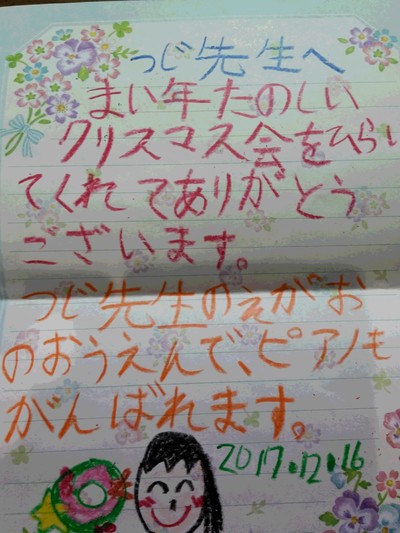 つじ先生へ
まい年たのしい
クリスマス会をひらい
てくれてありがとう
ございます。
つじ先生のえがお
のおうえんで、ピアノも
がんばれます。
2017.12.16